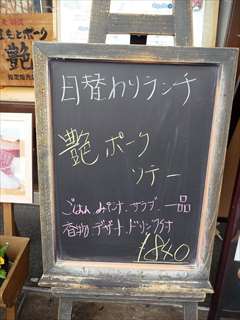 まもとポーク
艶
指定販売店
日替わりランチ
艶ポーク
ソテー
ごはん みそ汁 サラダ 一品
香物 デザート ドリンク付
¥1840